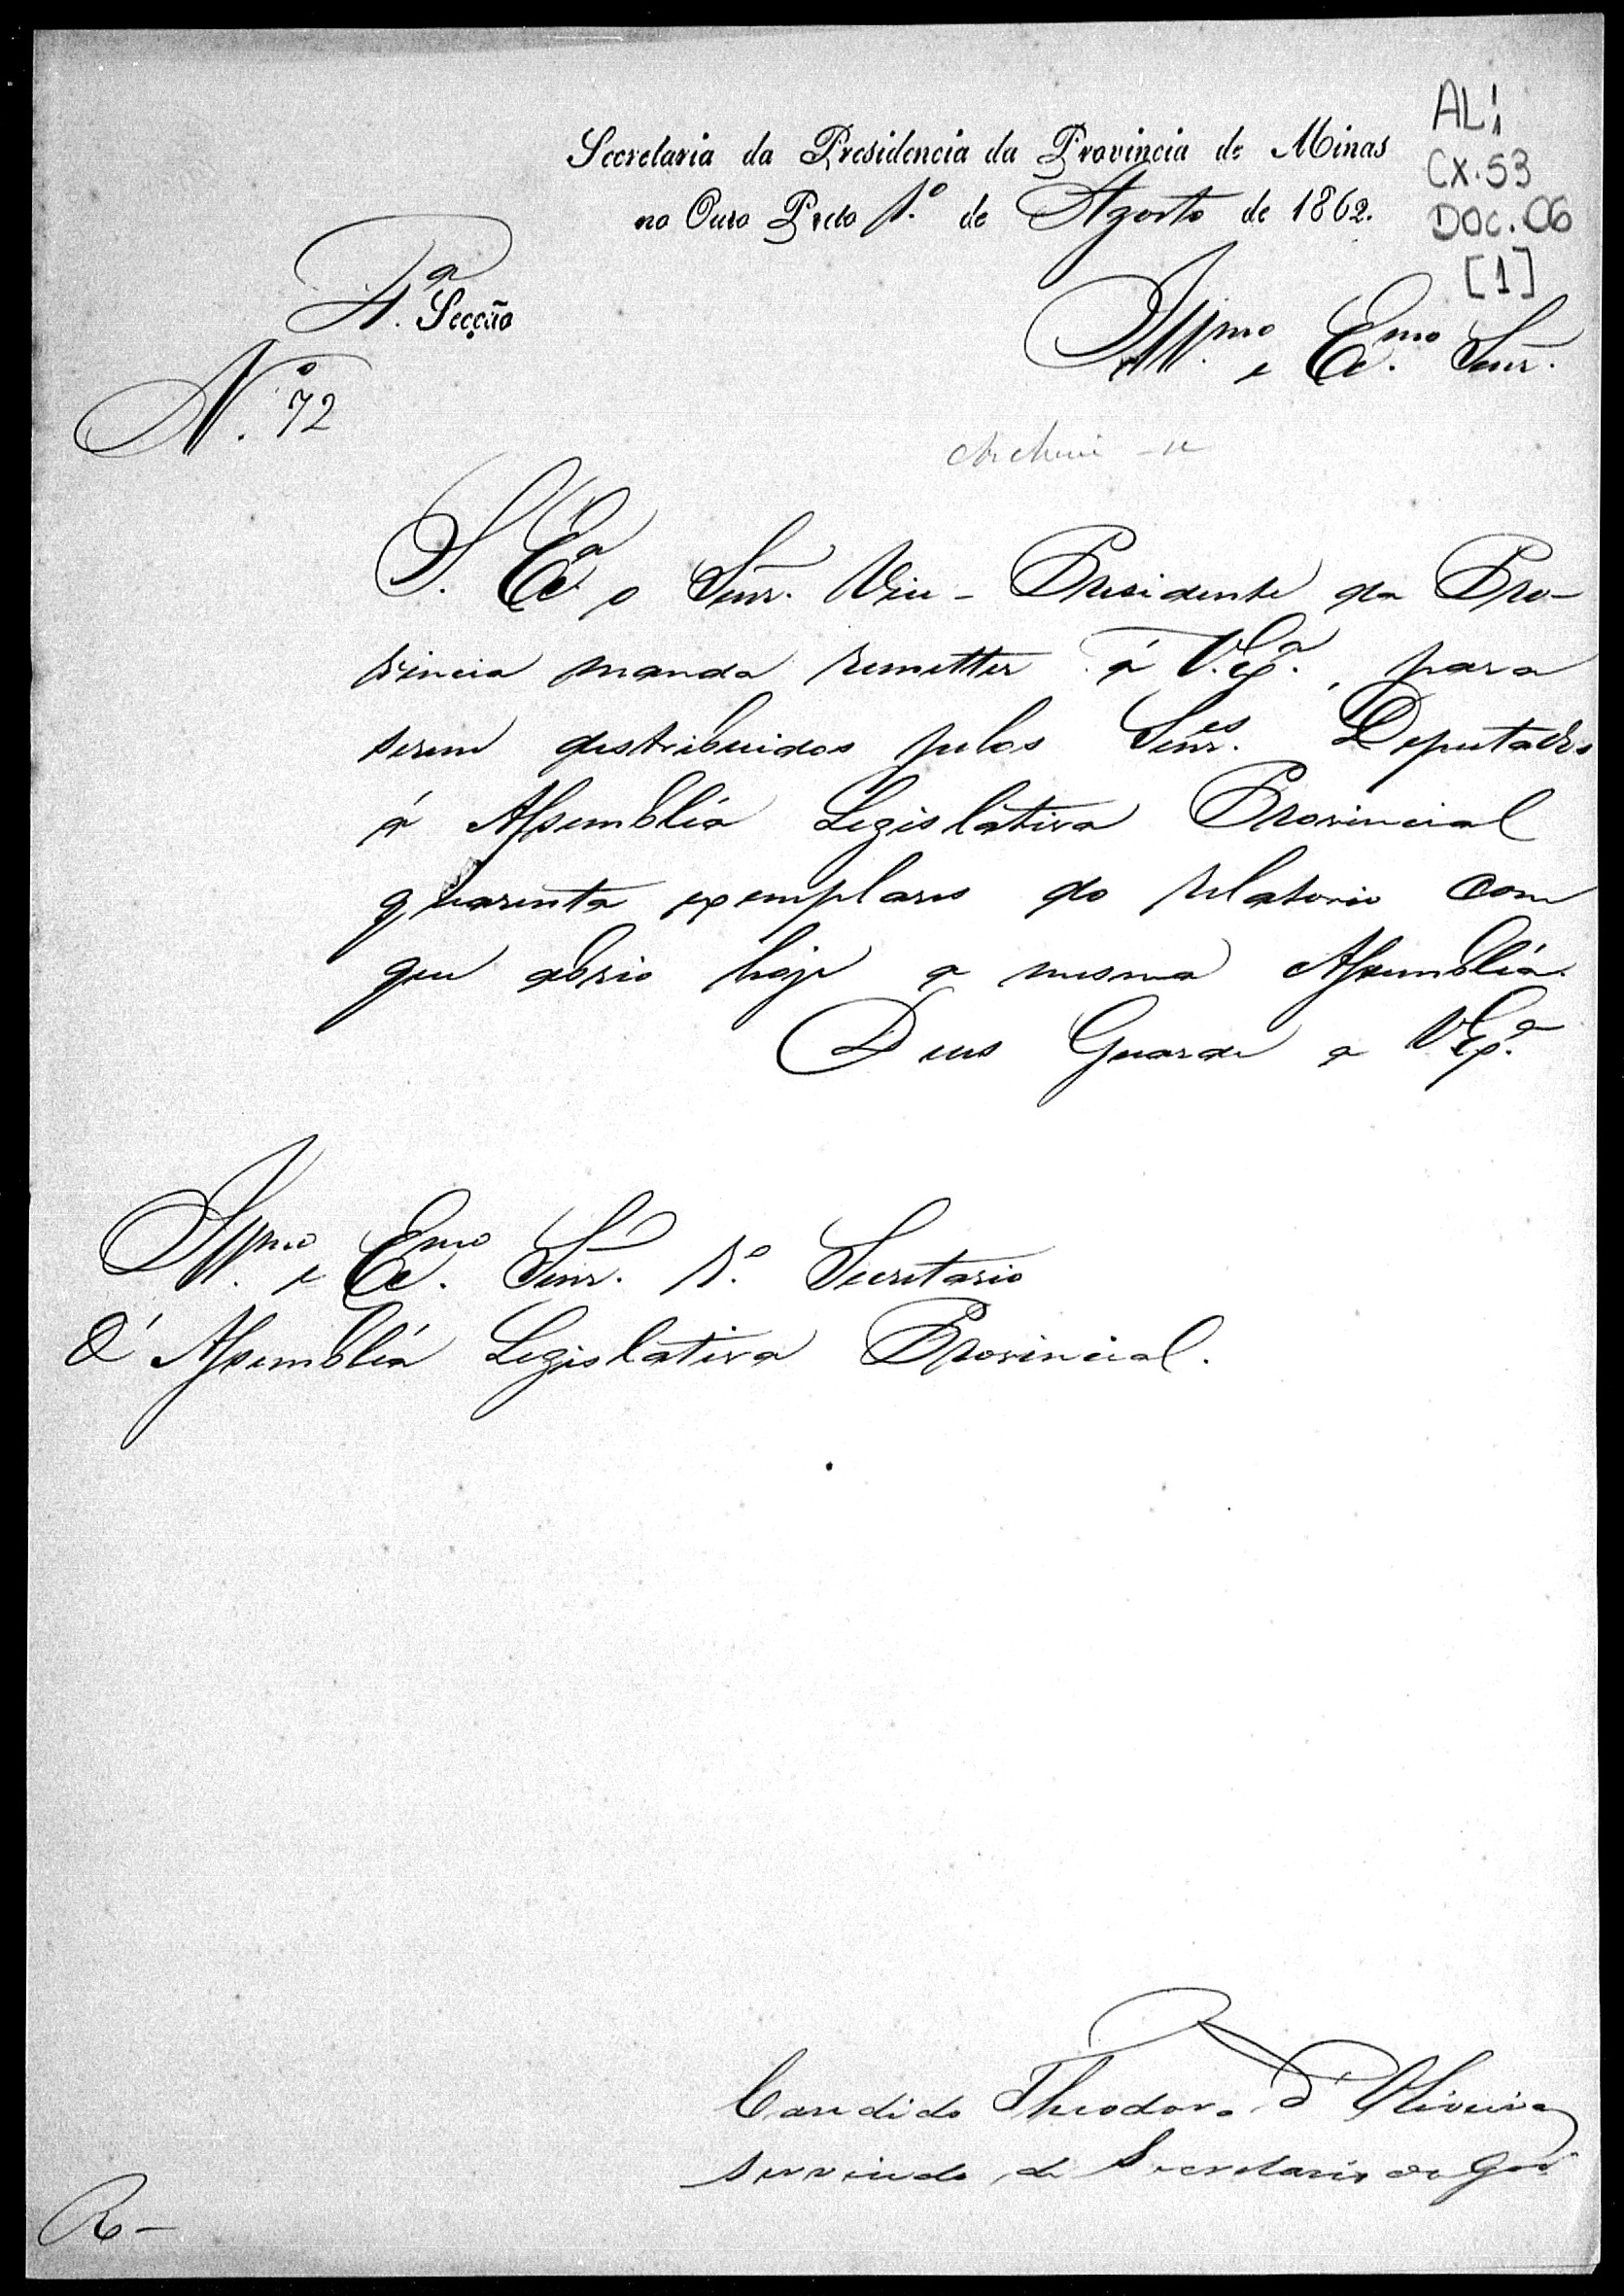 AL1
CX.53
DOC.06
[1]
Secretaria da Presidencia da Provincia de Minas
no Ouro Preto 1.º de Agosto de 1862.
4.ª Secção
N.º 72
Ill.mo e Ex.mo Senr.
Archive-se
S. Ex.ª o Senr. Vice-Presidente da Pro-
vincia manda remetter á V. Ex.ª, para
serem distribuidos pelos Senr.es Deputados
á Assembléa Legislativa Provincial
quarenta exemplares do relatorio com
que abrio hoje a mesma Assembléa.
Deus Guarde a V. Ex.ª
Ill.mo e Ex.mo Senr. 1.º Secretario
d'Assembléa Legislativa Provincial.
Candido Theodoro d'Oliveira
servindo de Secretario do Gov.º
R-